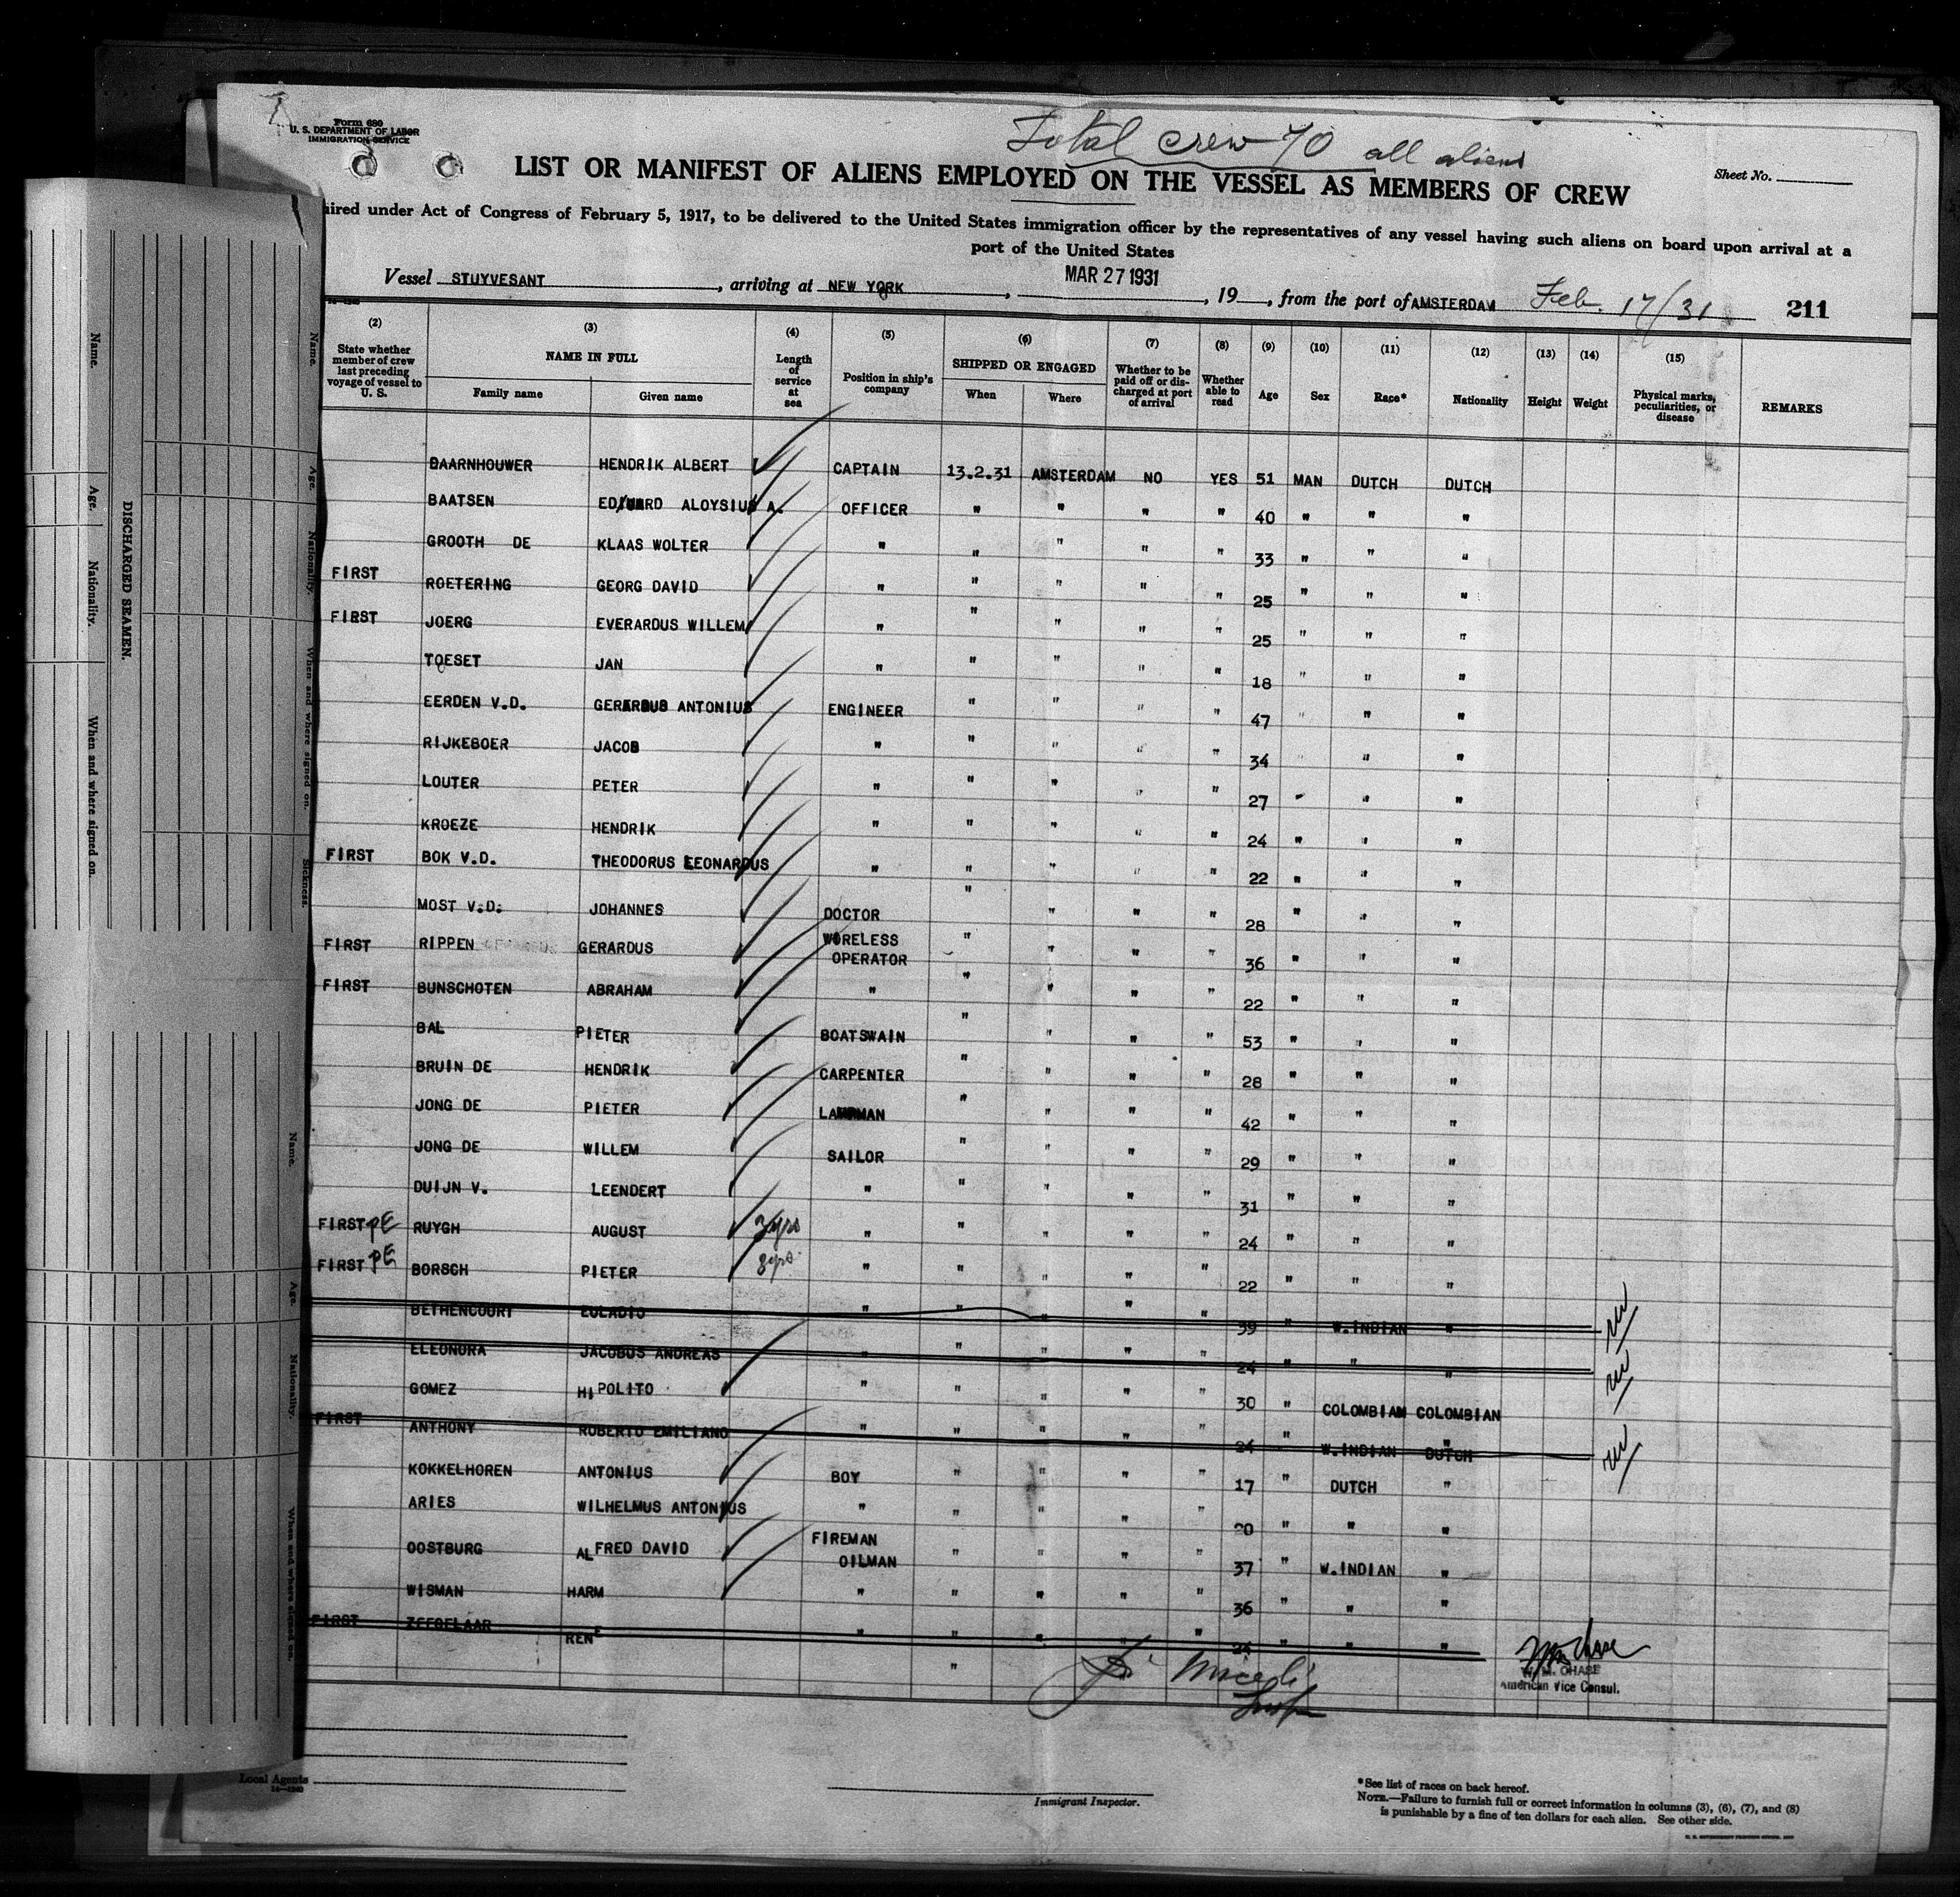 Form 680
U. S. DEPARTMENT OF LABOR
IMMIGRATION SERVICE
Total crew 70 all aliens
LIST OR MANIFEST OF ALIENS EMPLOYED ON THE VESSEL AS MEMBERS OF CREW
Sheet No.
ired under Act of Congress of February 5, 1917, to be delivered to the United States immigration officer by the representatives of any vessel having such aliens on board upon arrival at a
port of the United States
Vessel STUYVESANT, arriving at NEW YORK, MAR 27 1931, 19, from the port of AMSTERDAM Feb. 17/31 211
(2) (3) (4) (5) (6) (7) (8) (9) (10) (11) (12) (13) (14) (15)
State whether member of crew last preceding voyage of vessel to U. S. NAME IN FULL Length of service at sea Position in ship's company SHIPPED OR ENGAGED Whether to be paid off or discharged at port of arrival Whether able to read Age Sex Race* Nationality Height Weight Physical marks, peculiarities, or disease REMARKS
Family name Given name When Where
BAARNHOUWER HENDRIK ALBERT CAPTAIN 13.2.31 AMSTERDAM NO YES 51 MAN DUTCH DUTCH
BAATSEN EDUARD ALOYSIUS A. OFFICER " " " " 40 " " "
GROOTH DE KLAAS WOLTER " " " " " 33 " " "
FIRST ROETERING GEORG DAVID " " " " " 25 " " "
FIRST JOERG EVERARDUS WILLEM " " " " " 25 " " "
TOESET JAN " " " " " 18 " " "
EERDEN V.D. GERARDUS ANTONIUS ENGINEER " " " " 47 " " "
RIJKEBOER JACOB " " " " " 34 " " "
LOUTER PETER " " " " " 27 " " "
KROEZE HENDRIK " " " " " 24 " " "
FIRST BOK V.D. THEODORUS LEONARDUS " " " " " 22 " " "
MOST V.D. JOHANNES DOCTOR " " " " 28 " " "
FIRST RIPPEN GERARDUS WIRELESS OPERATOR " " " " 36 " " "
FIRST BUNSCHOTEN ABRAHAM " " " " " 22 " " "
BAL PIETER BOATSWAIN " " " " 53 " " "
BRUIN DE HENDRIK CARPENTER " " " " 28 " " "
JONG DE PIETER LAMPMAN " " " " 42 " " "
JONG DE WILLEM SAILOR " " " " 29 " " "
DUIJN V. LEENDERT " " " " " 31 " " "
FIRST PE RUYGH AUGUST 3yrs " " " " " 24 " " "
FIRST PE BORSCH PIETER 8yrs " " " " " 22 " " "
BETHENCOURT EULADIO " " " " " 39 " W.INDIAN "
ELEONORA JACOBUS ANDREAS " " " " " 24 " " "
GOMEZ HIPOLITO " " " " " 30 " COLOMBIAN COLOMBIAN
FIRST ANTHONY ROBERTO EMILIANO " " " " " 24 " W.INDIAN DUTCH
KOKKELHOREN ANTONIUS BOY " " " " 17 " DUTCH "
ARIES WILHELMUS ANTONIUS " " " " " 20 " " "
OOSTBURG ALFRED DAVID FIREMAN OILMAN " " " " 37 " W.INDIAN "
WISMAN HARM " " " " " 36 " " "
FIRST ZEEGELAAR RENE " " " " " 24 " " "
W. M. CHASE
American Vice Consul.
Local Agents
Immigrant Inspector.
*See list of races on back hereof.
NOTE.—Failure to furnish full or correct information in columns (3), (6), (7), and (8)
is punishable by a fine of ten dollars for each alien. See other side.
Name.
Age.
Nationality.
When and where signed on.
DISCHARGED SEAMEN.
Name.
Age.
Nationality.
When and where signed on.
Sickness.
Name.
Age.
Nationality.
When and where signed on.